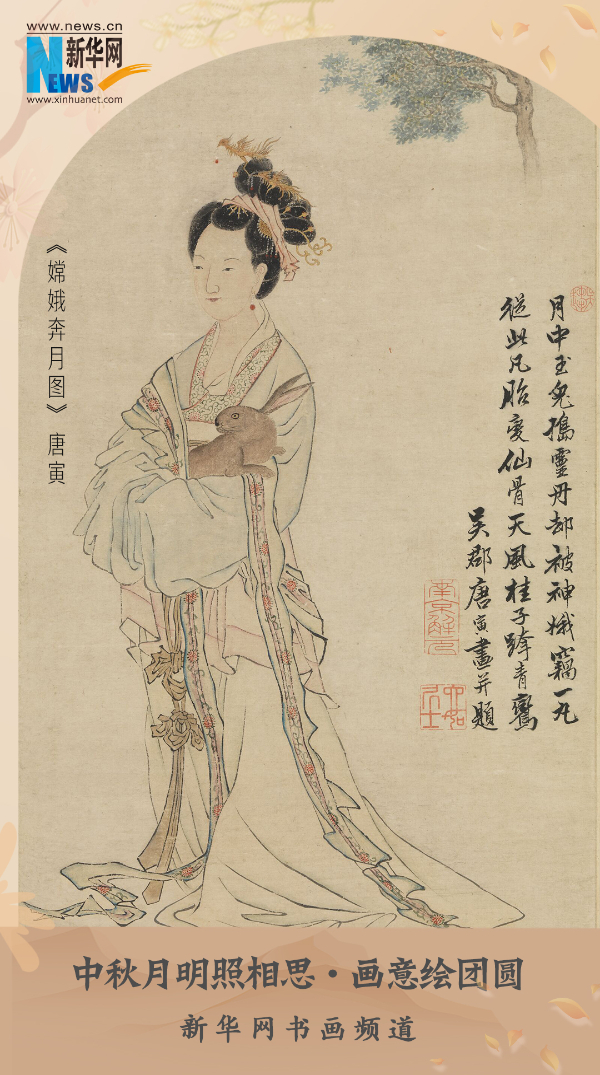 www.news.cn
新华网
NEWS
www.xinhuanet.com
《嫦娥奔月图》 唐寅
月中玉兔搗靈丹却被神娥竊一丸
從此凡胎變仙骨天風桂子跨青鸞
吳郡唐寅畫并題
南京解元
六如居士
中秋月明照相思·画意绘团圆
新华网书画频道